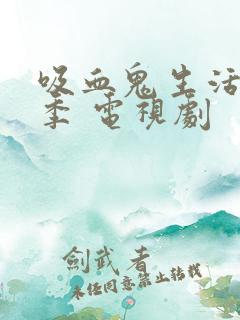 吸血鬼生活
季 電視劇
劍武者
未經同意禁止轉載